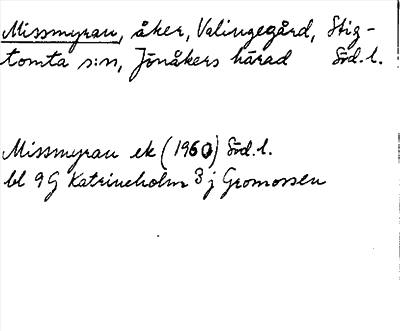 Missmyran, åker, Valingegård, Stig-
tomta s:n, Jönåkers härad Söd.l.
Missmyran ek (1960) Söd.l.
bl 9G Katrineholm 3 j Gromossen